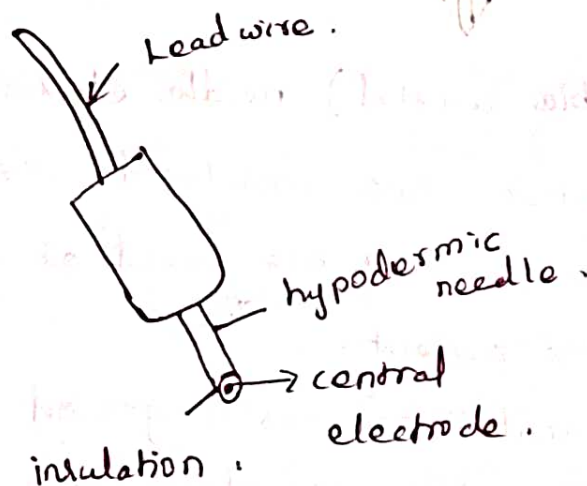 Lead wire .
hypodermic
needle .
central
electrode .
insulation .